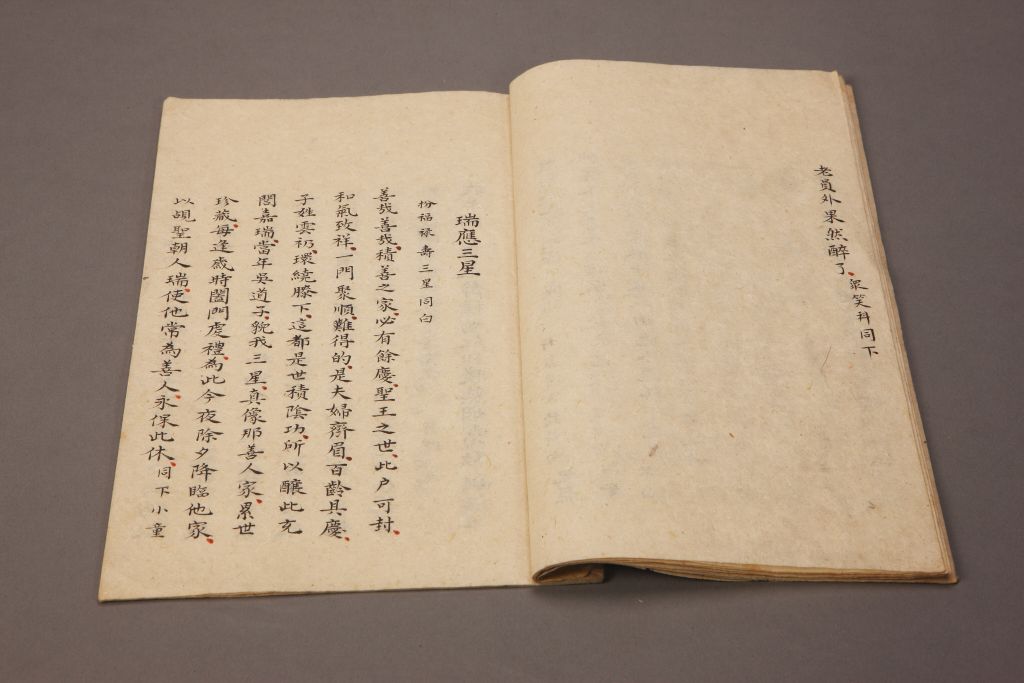 老員外果然醉了衆笑科同下
瑞應三星
扮福祿壽三星同白
善哉善哉積善之家必有餘慶聖王之世比户可封
和氣致祥一門聚順難得的是夫婦齊眉百齡具慶
子姓雲礽環繞膝下這都是世積陰功所以釀此充
閭嘉瑞當年吳道子貌我三星真像那善人家累世
珍藏每逢歲時闔門虔禮為此今夜除夕降臨他家
以覘聖朝人瑞使他常為善人永保此休同下小童